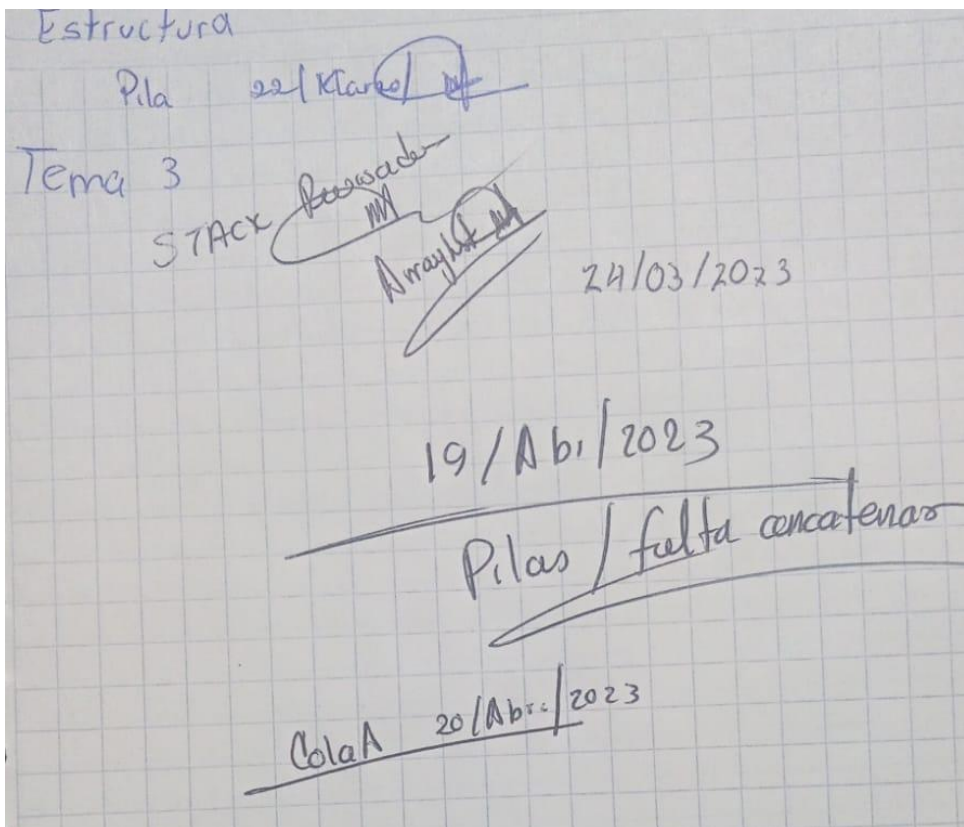 Estructura
Pila 22/Marzo/
Tema 3
STACK
ArrayList
24/03/2023
19/Abr/2023
Pilas / falta concatenar
ColaA 20/Abr./2023